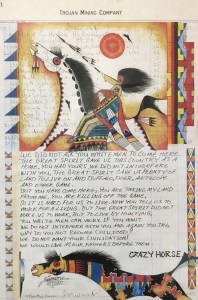 TROJAN MINING COMPANY
WE DID NOT ASK YOU WHITE MEN TO COME HERE.
THE GREAT SPIRIT GAVE US THIS COUNTRY AS A
HOME. YOU HAD YOURS. WE DID NOT INTERFERE
WITH YOU. THE GREAT SPIRIT GAVE US PLENTY OF
LAND TO LIVE ON, AND BUFFALO, DEER, ANTELOPE
AND OTHER GAME.
BUT YOU HAVE COME HERE; YOU ARE TAKING MY LAND
FROM ME; YOU ARE KILLING OFF OUR GAME,
SO IT IS HARD FOR US TO LIVE. NOW YOU TELL US TO
WORK FOR A LIVING, BUT THE GREAT SPIRIT DID NOT
MAKE US TO WORK, BUT TO LIVE BY HUNTING.
YOU WHITE MEN CAN WORK IF YOU WANT TO.
WE DO NOT INTERFERE WITH YOU, AND AGAIN YOU SAY,
WHY DO YOU NOT BECOME CIVILIZED?
WE DO NOT WANT YOUR CIVILIZATION!
WE WOULD LIVE AS OUR FATHERS BEFORE THEM.
CRAZY HORSE